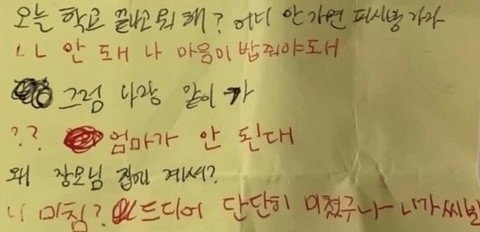 오늘 학교 끝나고 뭐 해? 어디 안 가면 피시방 가자
ㄴㄴ 안 돼 나 마음이 밥줘야돼
그럼 나랑 같이 가
?? 엄마가 안 된대
왜 장모님 집에 계셔?
니 미침? 드디어 단단히 미쳤구나 니가 씨발